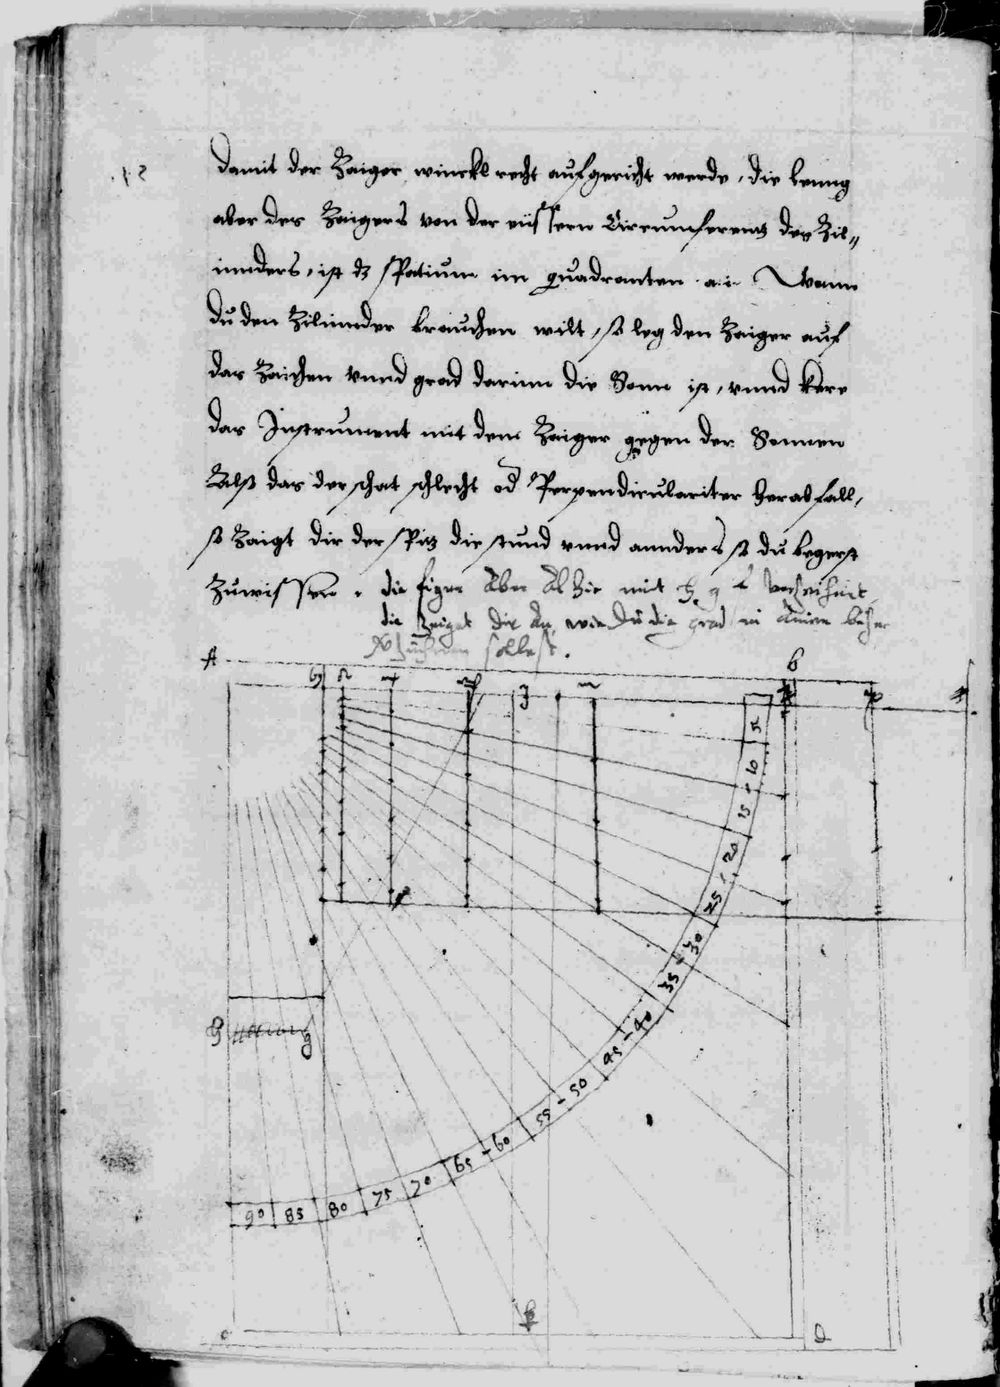 damit der Zaiger winckl recht aufgericht werde, die leung
aber des Zaigers von der eüssern Circumferentz des Zil„
innders, ist dz Spatium im quadranten a.i. Wann
du den Zilinnder brauchen wilt, so leg den Zaiger auf
das Zaichen vnnd grad darinn die Sonn ist, vnnd kere
das Instrument mit dem Zaiger gegen der Sonnen
Also das der schat schlecht od Perpendiculariter herab fall,
so Zaigt dir der Spitz die stund vnnd annders so du begerst
Zuwissen. die figur Aber Al hie mit
die Zeigt dir An, wie du die grad in
sollest.
A
b
5
10
15
20
25
30
35
40
45
50
55
60
65
70
75
80
85
90
c
D